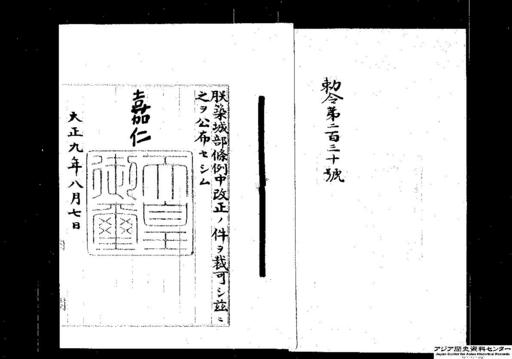 勅令第二百三十號
朕築城部條例中改正ノ件ヲ裁可シ茲ニ
之ヲ公布セシム
嘉仁
天皇
御璽
大正九年八月七日
アジア歴史資料センター
Japan Center for Asian Historical Records